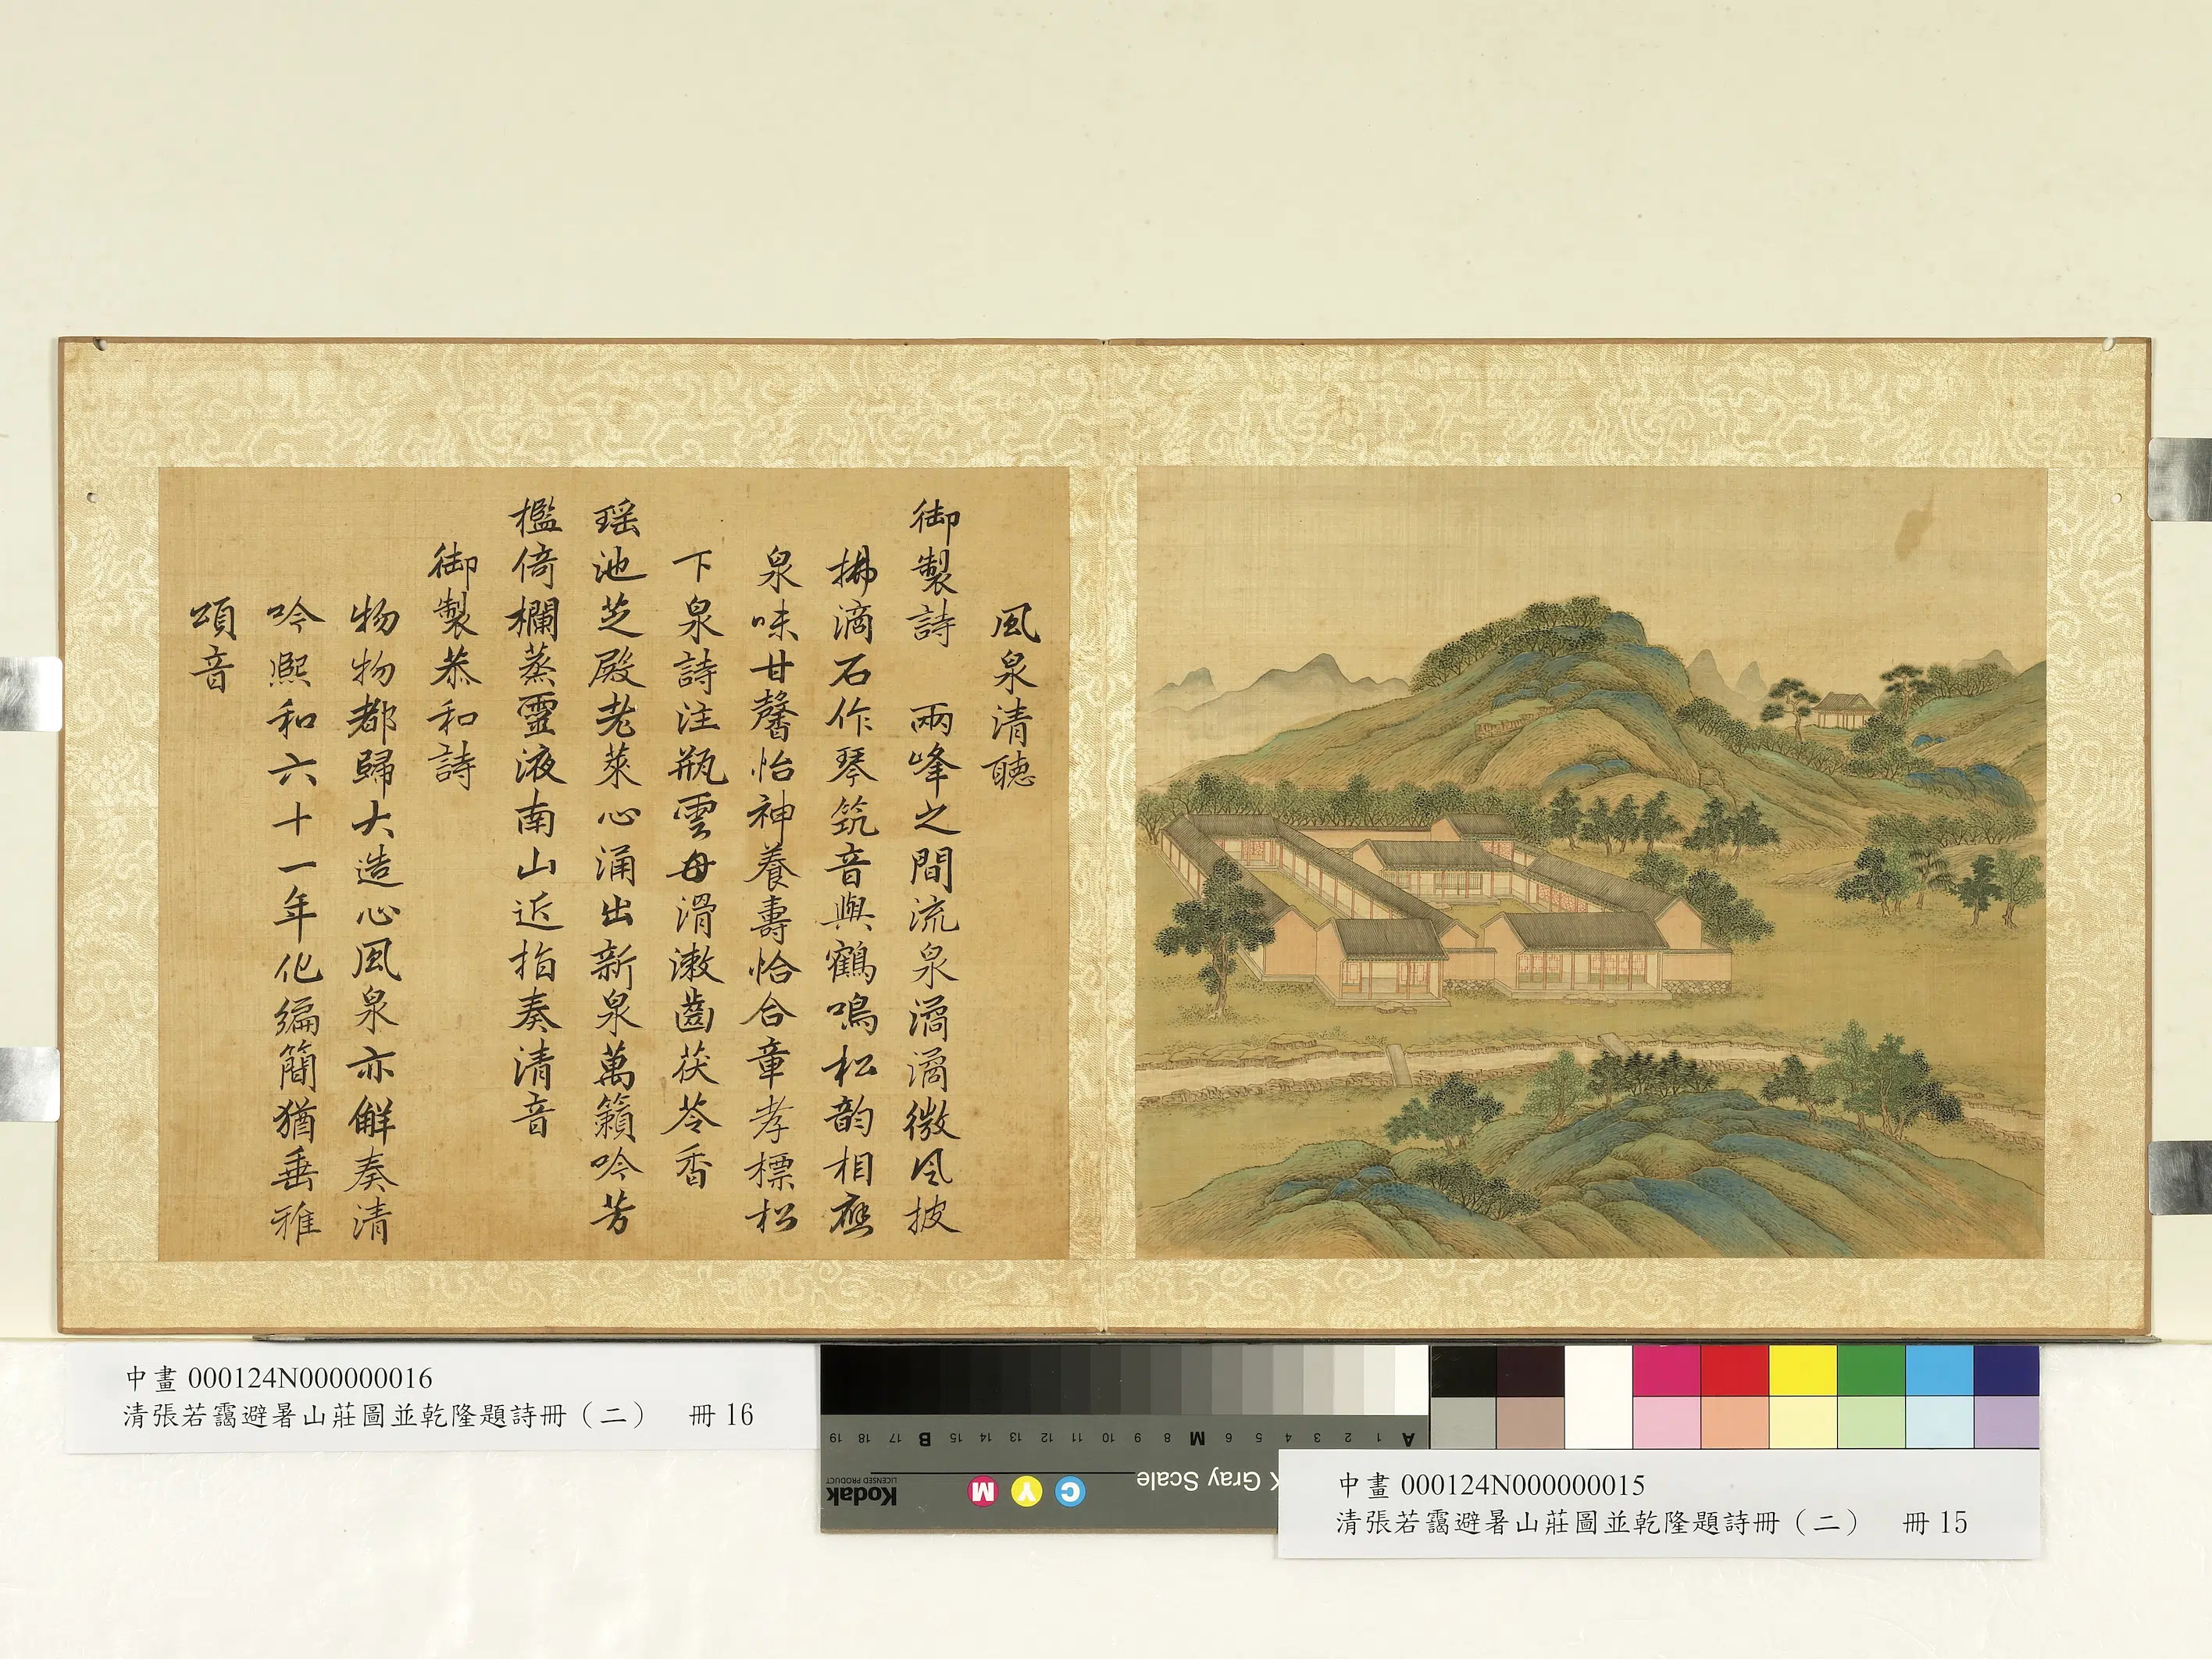 風泉清聽
御製詩　兩峰之間流泉潏潏微風披
拂滴石作琴筑音與鶴鳴松韵相應
泉味甘馨怡神養壽恰合章孝標松
下泉詩注瓶雲母滑漱齒茯苓香
瑶池芝殿老萊心涌出新泉萬籟吟芳
檻倚欄蒸靈液南山近指奏清音
御製恭和詩
物物都歸大造心風泉亦解奏清
吟熈和六十一年化編簡猶垂雅
頌音
中畫 000124N000000016
清張若靄避暑山莊圖並乾隆題詩冊（二）　冊 16
A 1 2 3 4 5 6 M 8 9 10 11 12 13 14 15 B 17 18 19
Gray Scale
C Y M
Kodak
LICENSED PRODUCT
中畫 000124N000000015
清張若靄避暑山莊圖並乾隆題詩冊（二）　冊 15